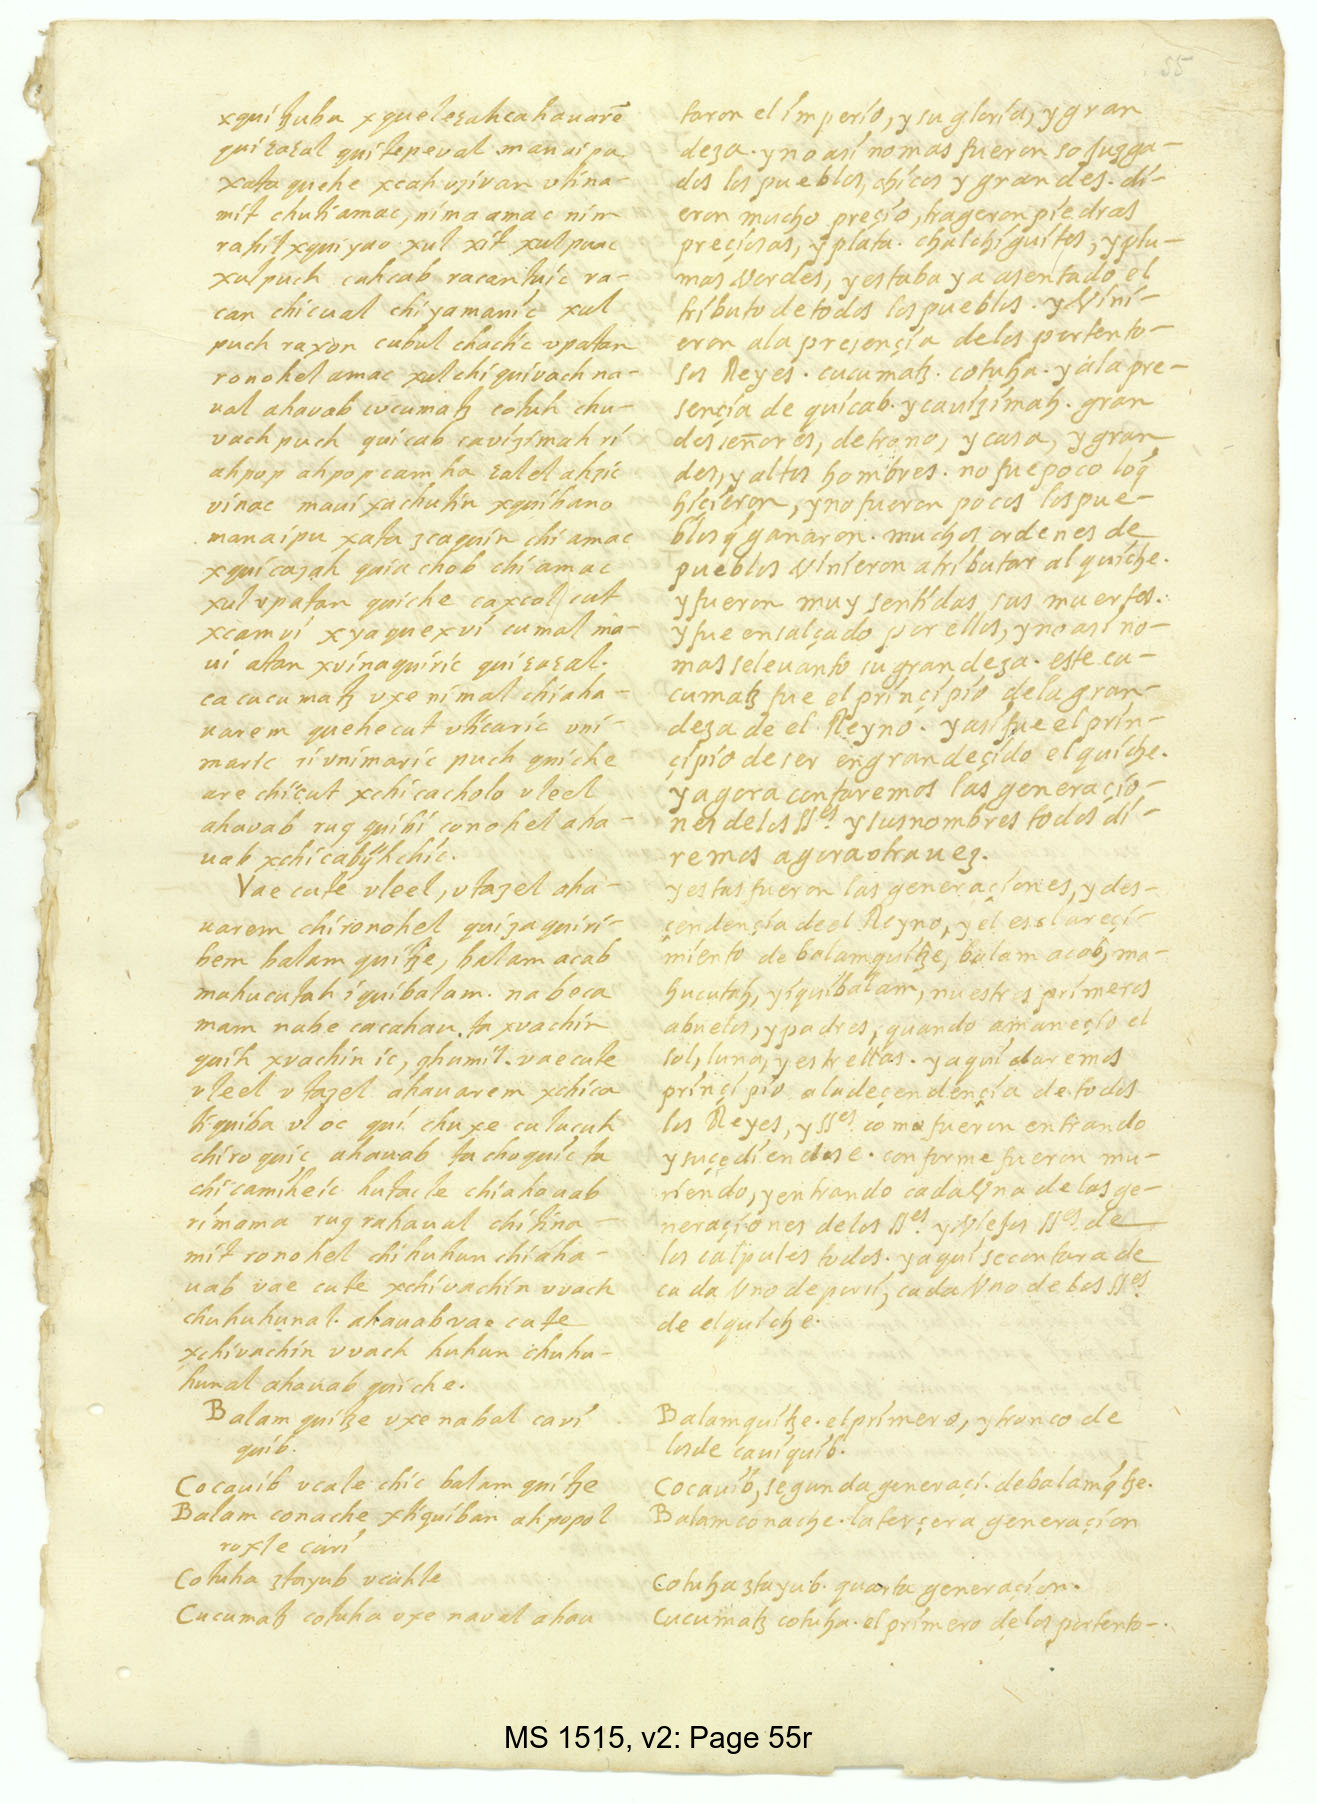 55
xquitzuba xqueleɛahcahauarē
quiɛaɛal quitepeval. manaipu
xata quehe xcah vzivan vtina-
mit chutiamac, nima amac nim
rahil xquiyao xul xit xul puac
xul puch cahcab racantuic ra-
can chicual chiyamanic xul
puch raxon cubul chactic vpatan
ronohel amac xul chiquivach na-
ual ahauab cucumatz cotuh chu-
vach puch quicab cavizimah ri
ahpop ahpop camha ɛalel ahtzic
vinac maui xachutin xquibano
manaipu xata ɜcaquin chi amac
xquicazah quia chob chi amac
xul vpatan quiche caxcol cut
xcamvi xyaquexvi cumal ma-
ui atan xvinaquiric quiɛaɛal.
ca cucumatz vxe nimal chiaha-
uarem quehecut vticaric vni-
maric ri vnimaric puch quiche
are chicut xchicacholo vleel
ahauab ruq quibi conohel aha-
uab xchicabijhchic.
Vae cute vleel, vtazel aha-
uarem chironohel quizaquiri-
bem balam quitze, balam acab
mahucutah iquibalam. nabeca
mam nabe cacahau, ta xvachin
quih xvachin ic, chumil. vaecute
vleel vtazel ahauarem xchica
tiquiba vloc qui chuxe catacuh
chiro quic ahauab ta choquic ta
chicamiheic hutacle chiahauab
rimama ruq rahaual chitina-
mit ronohel chihuhun chiaha-
uab vae cute xchivachin vvach
chuhuhunal. ahauab vae cute
xchivachin vvach huhun chuhu-
hunal ahauab quiche.
Balam quitze vxe nabal cavi
quib.
Cocavib vcale chic balam quitze
Balam conache xtiquiban ahpopol
roxle cavi
Cotuha ztayub vcahle
Cucumatz cotuha vxe naval ahau
taron el imperio, y su gloria, y gran
deza. y no asi nomas fueron sojuzga-
dos los pueblos, chicos y grandes. di-
eron mucho preçio, trageron piedras
preçiosas, y plata. chalchiguites, y plu-
mas verdes, y estaba ya asentado el
tributo de todos los pueblos. y vini-
eron ala presençia delos portento-
sos Reyes. cucumatz. cotuha. y ala pre-
sençia de quicab. y cauizimah. gran
des señores, de trono, y casa, y gran
des, y altos hombres. no fue poco loq̃
hiçieron, y no fueron pocos los pue-
blos q̃ ganaron. muchos ordenes de
pueblos vinieron atributar al quiche.
y fueron muy sentidas, sus muertes.
y fue ensalçado por ellos, y no asi no-
mas se leuanto su grandeza. este cu-
cumatz fue el prinçipio dela gran-
deza de el Reyno. y asi fue el prin-
çipio de ser engrandeçido el quiche.
y agora contaremos las generaçio-
nes delos SSes. y sus nombres todos di-
remos agora otra uez.
y estas fueron las generaçiones, y des-
çendençia de el Reyno, y el esclareçi-
miento de balamquitze, balam acab, ma-
hucutah, y iquibalam, nuestros primeros
abuelos, y padres, quando amaneçio el
sol, luna, y estrellas. y aqui daremos
prinçipio ala deçendençia de todos
los Reyes, y SSes. como fueron entrando
y suçediendose. conforme fueron mu-
riendo, y entrando cada vna de las ge-
neraçiones delos SSes. y viejos SSes. de
los calpules todos. y aqui se contara de
cada vno de por si, cada vno de los SSes
de el quiche.
Balamquitze. el primero, y tronco de
los de cauiquib.
Cocauib, segunda generaçi. de balamq̃tze.
Balamconache. la terçera generaçion
Cotuha ztayub. quarta generaçion.
Cucumatz cotuha. el primero delos portento-
MS 1515, v2: Page 55r